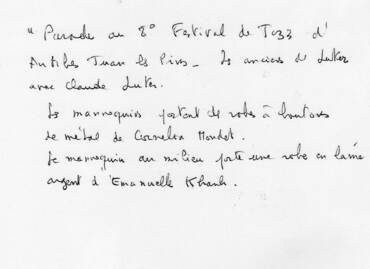 "Parade au 8° Festival de Jazz d'
Antibes Juan les Pins - les anciens de Luter
avec Claude Luter.
Les mannequins portent de robe à boutons
de métal de Cornelia Mondet.
Le mannequin au milieu porte une robe en lamé
argent d'Emanuelle Khanh.